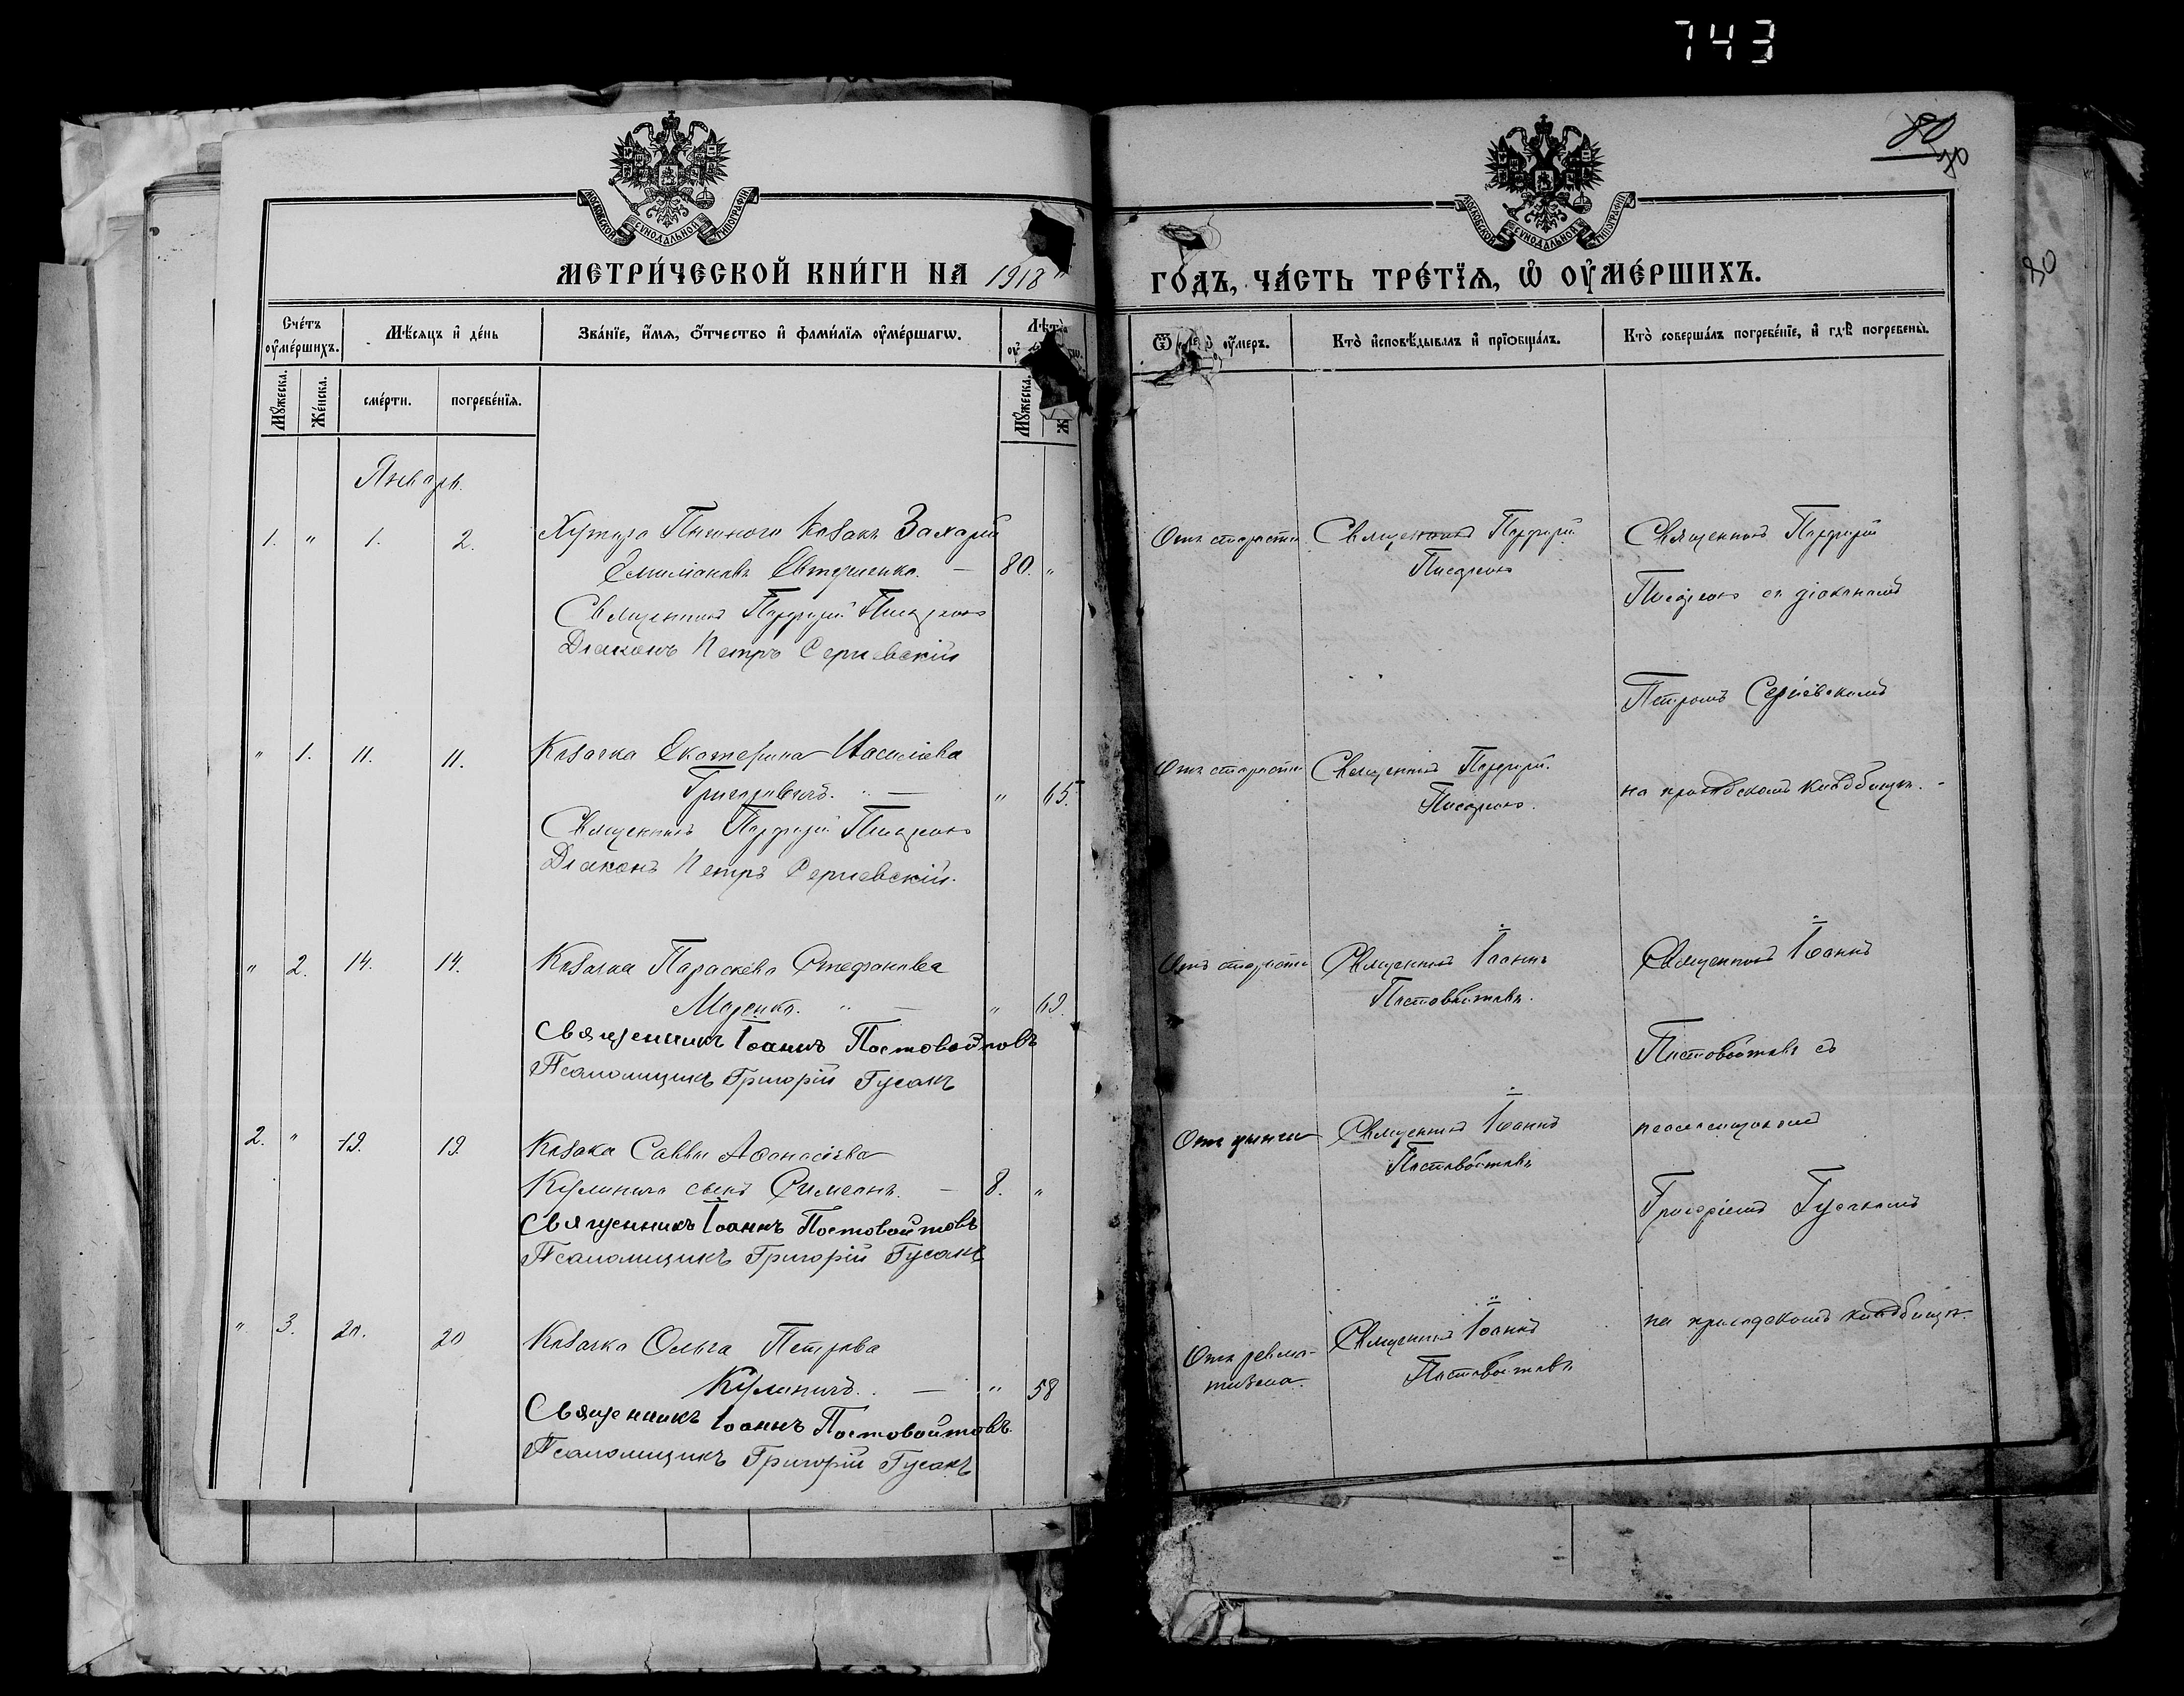 743
80
70
80
МОСКОВСКОЙ СѴНОДАЛЬНОЙ ТИПОГРАФІИ
МОСКОВСКОЙ СѴНОДАЛЬНОЙ ТИПОГРАФІИ
МЕТРИ́ЧЕСКОЙ КНИ́ГИ НА 1918
ГО́ДЪ, ЧА́СТЬ ТРЕ́ТЇѦ, Ѡ ОУМЕ́РШИХЪ.
Сче́тъ оумершихъ.
Мѣсяцъ и де́нь
Зва́нїе, и́мѧ, Ѻтчество и фами́лїѧ оуме́ршагѡ.
Лѣта
Ѿ оумеръ.
Кто̀ исповѣдывалъ и прїобща́лъ.
Кто̀ соверша́лъ погребе́нїе, и гдѣ погребены̀.
Мꙋжеска.
Же́нска.
сме́рти.
погребе́нїѧ.
Мꙋжеска.
Ж
Январь.
1. " 1. 2. Хутора Козакъ Захарій
Евтушенко. — 80. "
Священникъ Порфирій Писаренко
Діаконъ Петръ Сергіевскій
Отъ старости
Священникъ Порфирій
Писаренко
Священникъ Порфирій
Писаренко съ діакономъ
Петромъ Сергіевскимъ
на приходскомъ кладбищѣ.
" 1. 11. 11. Козачка Екатерина Василіева
Григоровичъ. " — " 65.
Священникъ Порфирій Писаренко
Діаконъ Петръ Сергіевскій.
Отъ старости
Священникъ Порфирій
Писаренко.
" 2. 14. 14. Козачка Параскева Стефанова
Мазенко. " — " 69.
Священникъ Іоаннъ Постовойтовъ
Псаломщикъ Григорій Гусакъ
Отъ старости
Священникъ Іоаннъ
Постовойтовъ.
Священникъ Іоаннъ
Постовойтовъ съ
псаломщикомъ
Григоріемъ Гусакомъ
на приходскомъ кладбищѣ.
2. " 19. 19. Козака Саввы Аѳанасіева
Кулинича сынъ Симеонъ. — 8. "
Священникъ Іоаннъ Постовойтовъ
Псаломщикъ Григорій Гусакъ
Отъ
Священникъ Іоаннъ
Постовойтовъ
" 3. 20. 20 Козачка Ольга Петрова
Кулиничъ. . — " 58
Священникъ Іоаннъ Постовойтовъ.
Псаломщикъ Григорій Гусакъ
Отъ ревма-
тизма.
Священникъ Іоаннъ
Постовойтовъ